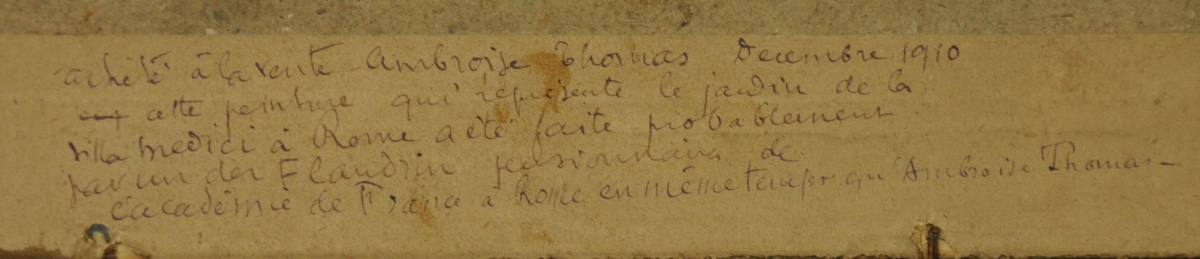 acheté à la vente Ambroise Thomas Decembre 1910
cette peinture qui représente le jardin de la
villa medici à Rome a été faite probablement
par un des Flandrin pensionnaires de
l'académie de France à Rome en même temps qu'Ambroise Thomas -